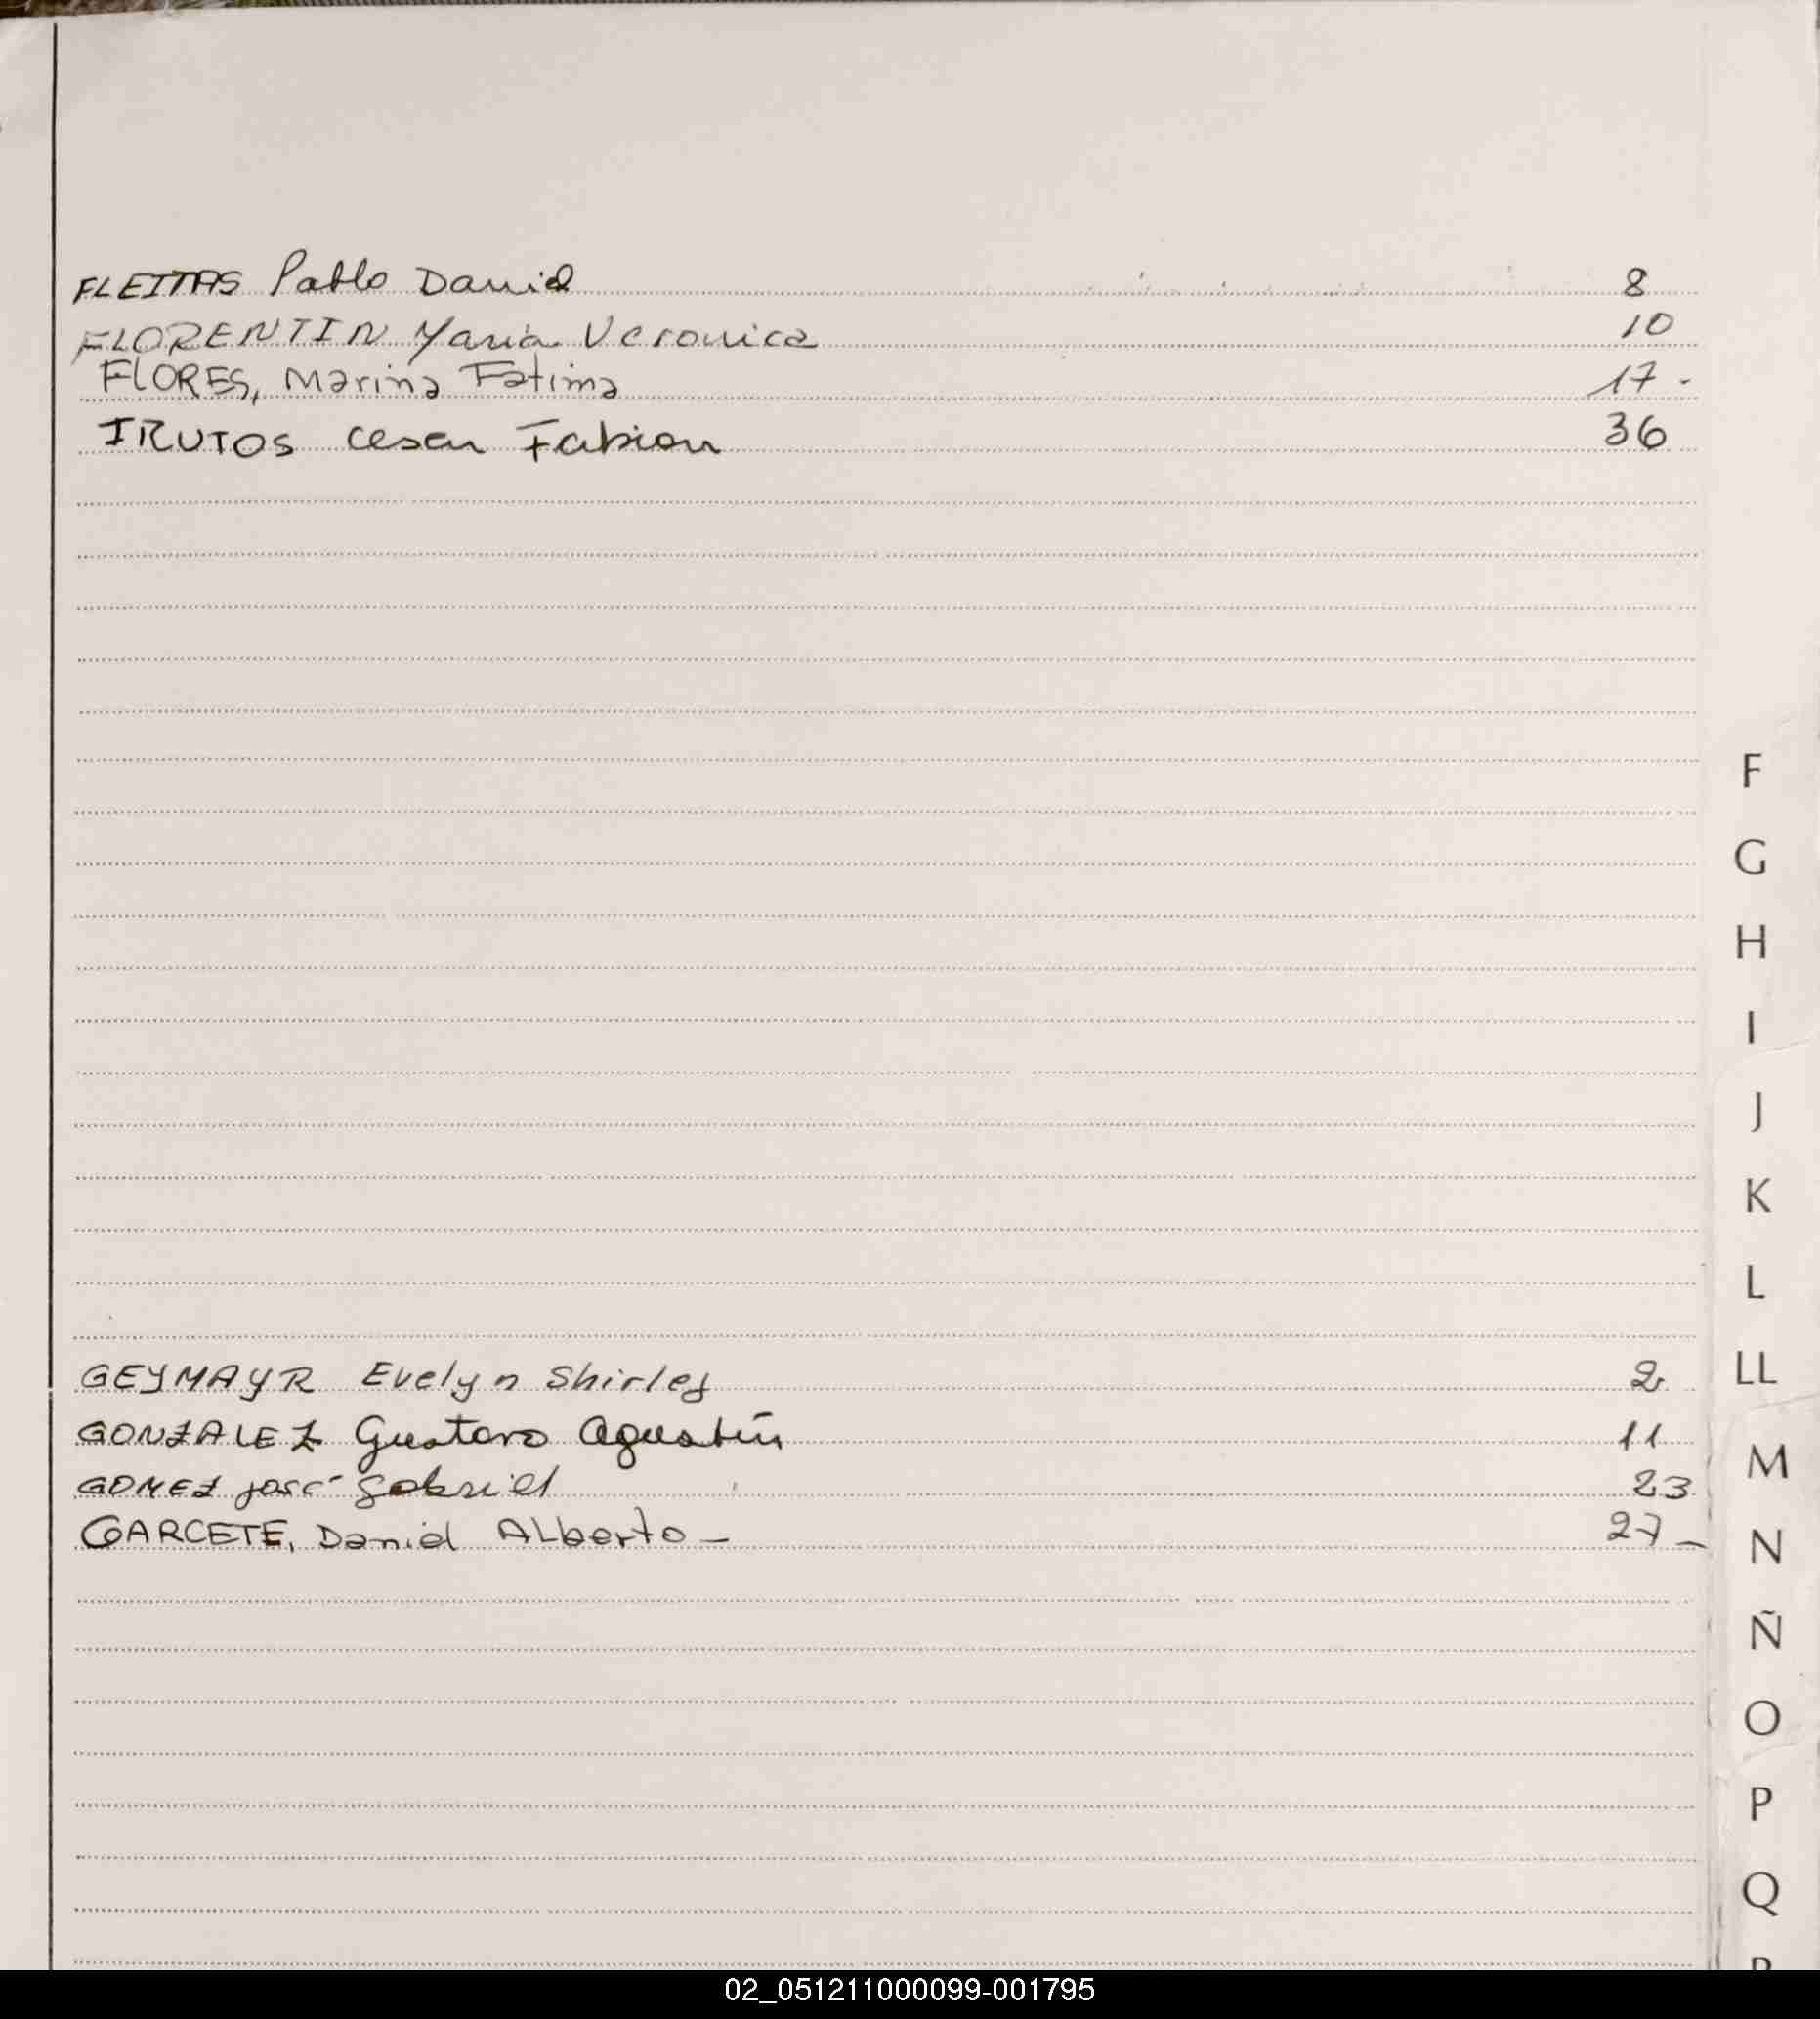 FLEITAS Pablo Daniel 8
FLORENTIN Maria Veronica 10
FLORES, Marina Fatima 17 -
IRUTOS Cesar Fabian 36
F
G
H
I
J
K
L
GEYMAYR Evelyn Shirley 2
LL
GONZALEZ Gustavo Agustín 11
M
GOMEZ José Gabriel 23
GARCETE, Daniel ALberto - 27 -
N
Ñ
O
P
Q
02_051211000099-001795